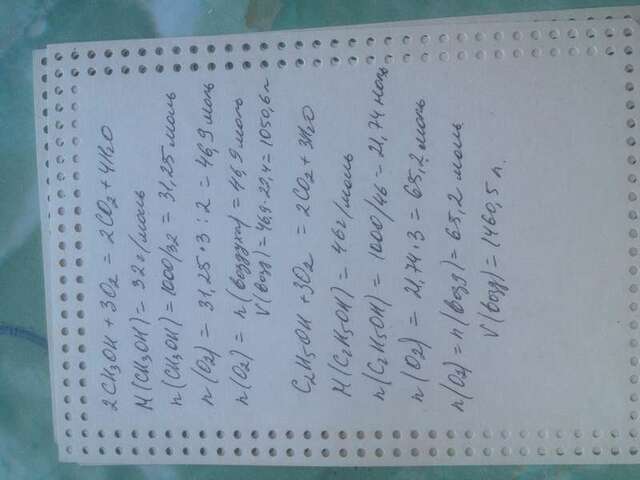 2CH3OH + 3O2 = 2CO2 + 4H2O
M(CH3OH) = 32 г/моль
n(CH3OH) = 1000/32 = 31,25 моль
n(O2) = 31,25 · 3 : 2 = 46,9 моль
n(O2) = n(воздуха) = 46,9 моль
V(возд) = 46,9 · 22,4 = 1050,6 л
C2H5OH + 3O2 = 2CO2 + 3H2O
M(C2H5OH) = 46 г/моль
n(C2H5OH) = 1000/46 = 21,74 моль
n(O2) = 21,74 · 3 = 65,2 моль
n(O2) = n(возд) = 65,2 моль
V(возд) = 1460,5 л.